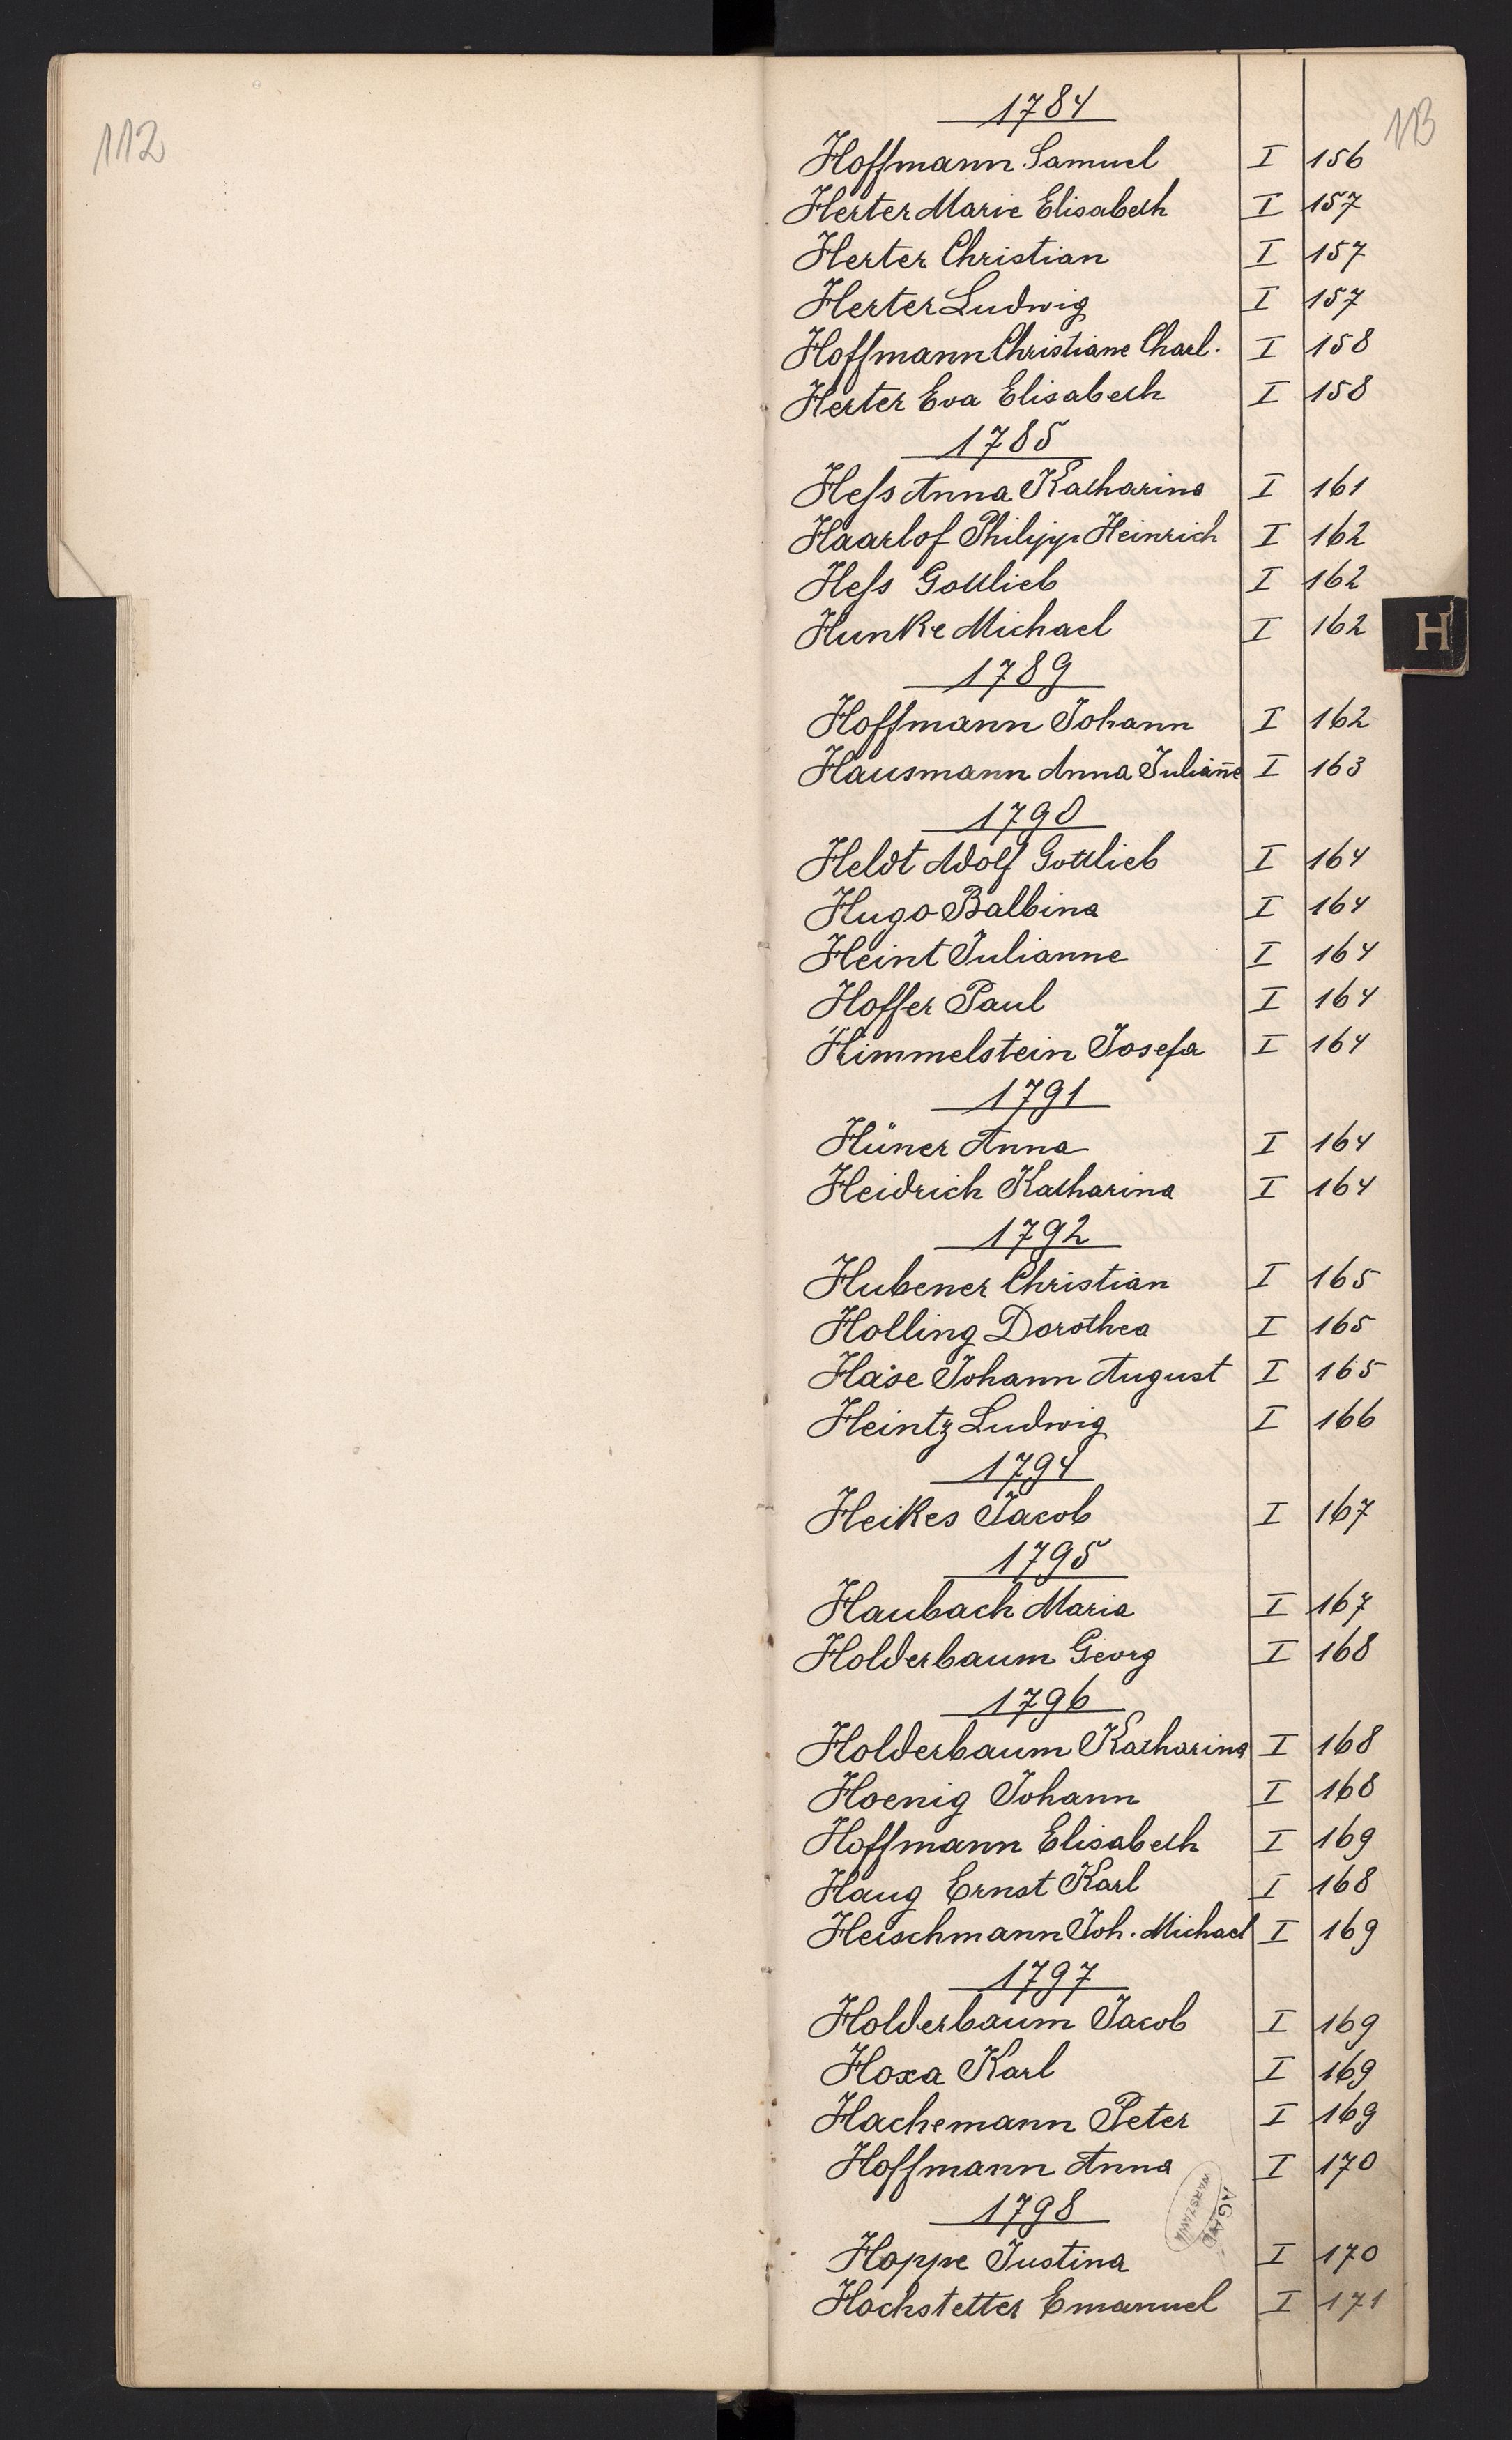 112
113
1784
Hoffmann Samuel I 156
Herter Marie Elisabeth I 157
Herter Christian I 157
Herter Ludwig I 157
Hoffmann Christiane Charl. I 158
Herter Eva Elisabeth I 158
1785
Heſs Anna Katharina I 161
Haarlof Philipp Heinrich I 162
Heſs Gottlieb I 162
Hunke Michael I 162
H
1789
Hoffmann Johann I 162
Hausmann Anna Julian̄e I 163
1790
Heldt Adolf Gottlieb I 164
Hugo Balbina I 164
Heint Julianne I 164
Hoffer Paul I 164
Himmelstein Josefa I 164
1791
Hüner Anna I 164
Heidrich Katharina I 164
1792
Hubener Christian I 165
Holling Dorothea I 165
Hase Johann August I 165
Heintz Ludwig I 166
1794
Heikes Jacob I 167
1795
Haubach Maria I 167
Holderbaum Georg I 168
1796
Holderbaum Katharina I 168
Hoenig Johann I 168
Hoffmann Elisabeth I 169
Haug Ernst Karl I 168
Heischmann Joh. Michael I 169
1797
Holderbaum Jacob I 169
Hoxa Karl I 169
Hachemann Peter I 169
Hoffmann Anna I 170
AGAD
WARSZAWA
1798
Hoppe Justina I 170
Hochstetter Emanuel I 171